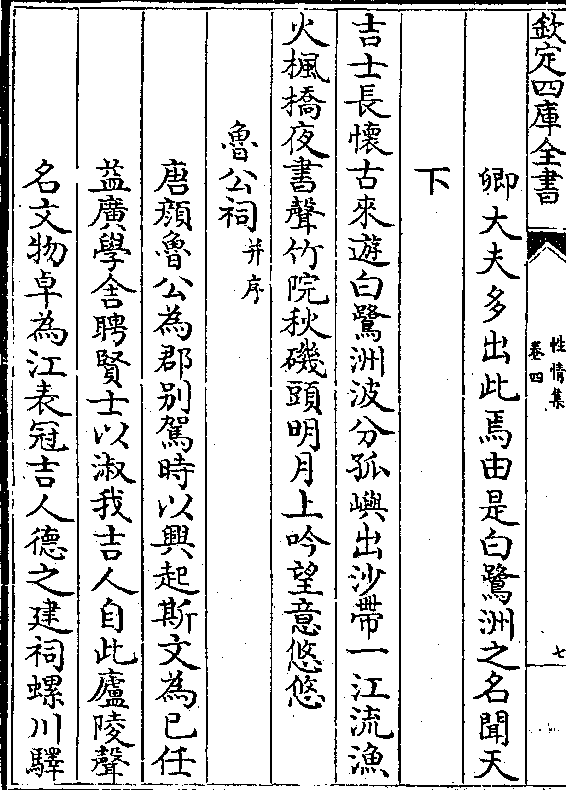 欽定四庫全書
性情集
卷四
七
卿大夫多出此焉由是白鷺洲之名聞天
下
吉士長懷古來遊白鷺洲波分孤嶼出沙帶一江流漁
火楓橋夜書聲竹院秋磯頭明月上吟望意悠悠
魯公祠并序
唐顔魯公為郡别駕時以興起斯文為已任
益廣學舍聘賢士以淑我吉人自此廬陵聲
名文物卓為江表冠吉人德之建祠螺川驛